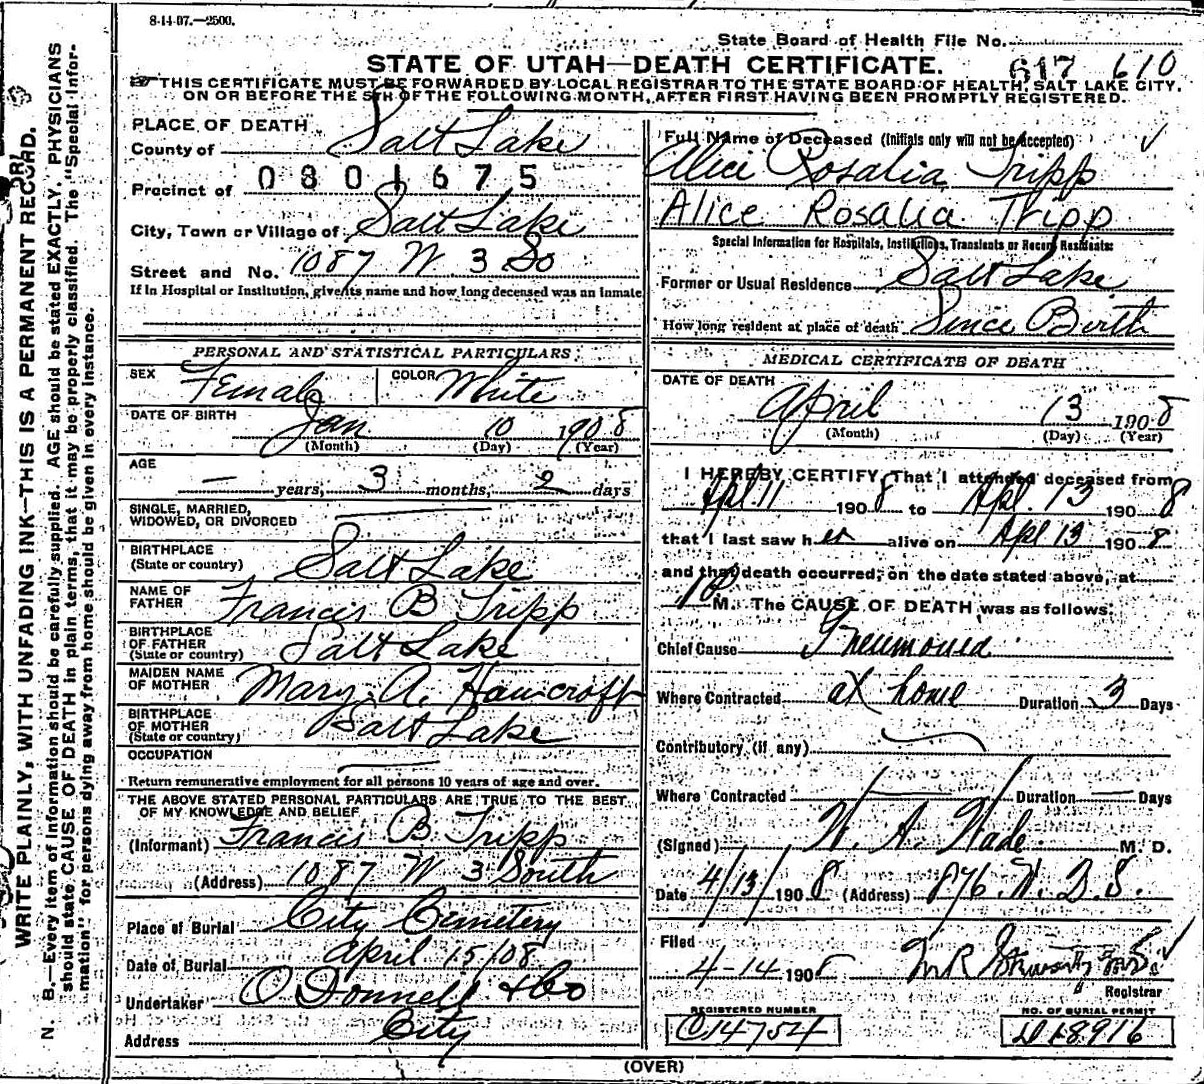 8-14-07.—2500.
State Board of Health File No.
STATE OF UTAH—DEATH CERTIFICATE. 617 610
THIS CERTIFICATE MUST BE FORWARDED BY LOCAL REGISTRAR TO THE STATE BOARD OF HEALTH, SALT LAKE CITY,
ON OR BEFORE THE 5TH OF THE FOLLOWING MONTH, AFTER FIRST HAVING BEEN PROMPTLY REGISTERED.
WRITE PLAINLY, WITH UNFADING INK—THIS IS A PERMANENT RECORD.
N. B.—Every item of information should be carefully supplied. AGE should be stated EXACTLY. PHYSICIANS
should state CAUSE OF DEATH in plain terms, that it may be properly classified. The "Special Infor-
mation" for persons dying away from home should be given in every instance.
PLACE OF DEATH
County of Salt Lake
Precinct of 0801675
City, Town or Village of Salt Lake
Street and No. 1087 W 3 So
If in Hospital or Institution, give its name and how long deceased was an inmate
PERSONAL AND STATISTICAL PARTICULARS
SEX Female COLOR White
DATE OF BIRTH
Jan 10 1908
(Month) (Day) (Year)
AGE
— years, 3 months, 2 days
SINGLE, MARRIED,
WIDOWED, OR DIVORCED
BIRTHPLACE
(State or country) Salt Lake
NAME OF
FATHER Francis B Tripp
BIRTHPLACE
OF FATHER
(State or country) Salt Lake
MAIDEN NAME
OF MOTHER Mary A.
BIRTHPLACE
OF MOTHER
(State or country) Salt Lake
OCCUPATION
Return remunerative employment for all persons 10 years of age and over.
THE ABOVE STATED PERSONAL PARTICULARS ARE TRUE TO THE BEST
OF MY KNOWLEDGE AND BELIEF
(Informant) Francis B Tripp
(Address) 1087 W 3 South
Place of Burial City Cemetery
Date of Burial April 15/08
Undertaker O'Donnell & Co
Address City
Full Name of Deceased (Initials only will not be accepted)
Alice Rosalia Tripp
Alice Rosalia Tripp
Special Information for Hospitals, Institutions, Transients or Recent Residents:
Former or Usual Residence Salt Lake
How long resident at place of death Since Birth
MEDICAL CERTIFICATE OF DEATH
DATE OF DEATH
April 13 1908
(Month) (Day) (Year)
I HEREBY CERTIFY, That I attended deceased from
Apl 11 1908 to Apl. 13 1908
that I last saw her alive on Apl 13 1908
and that death occurred, on the date stated above, at
10 M. The CAUSE OF DEATH was as follows:
Chief Cause Pneumonia
Where Contracted at home Duration 3 Days
Contributory (if any)
Where Contracted — Duration — Days
(Signed) W. A. Wade M. D.
Date 4/13/1908 (Address) 876 W. 2 S.
Filed
4-14 1908 M R Stewart M.D.
Registrar
REGISTERED NUMBER
C14754
NO. OF BURIAL PERMIT
D18916
(OVER)